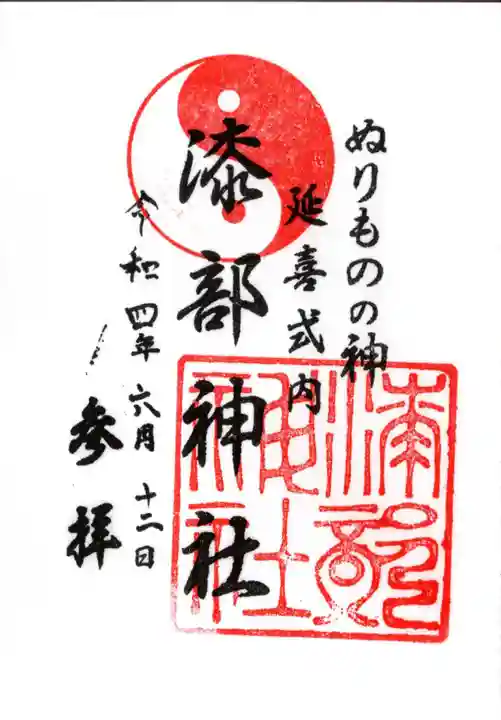 ぬりものの神
延喜式内
漆部神社
令和四年六月十二日
参拝
漆部
神社